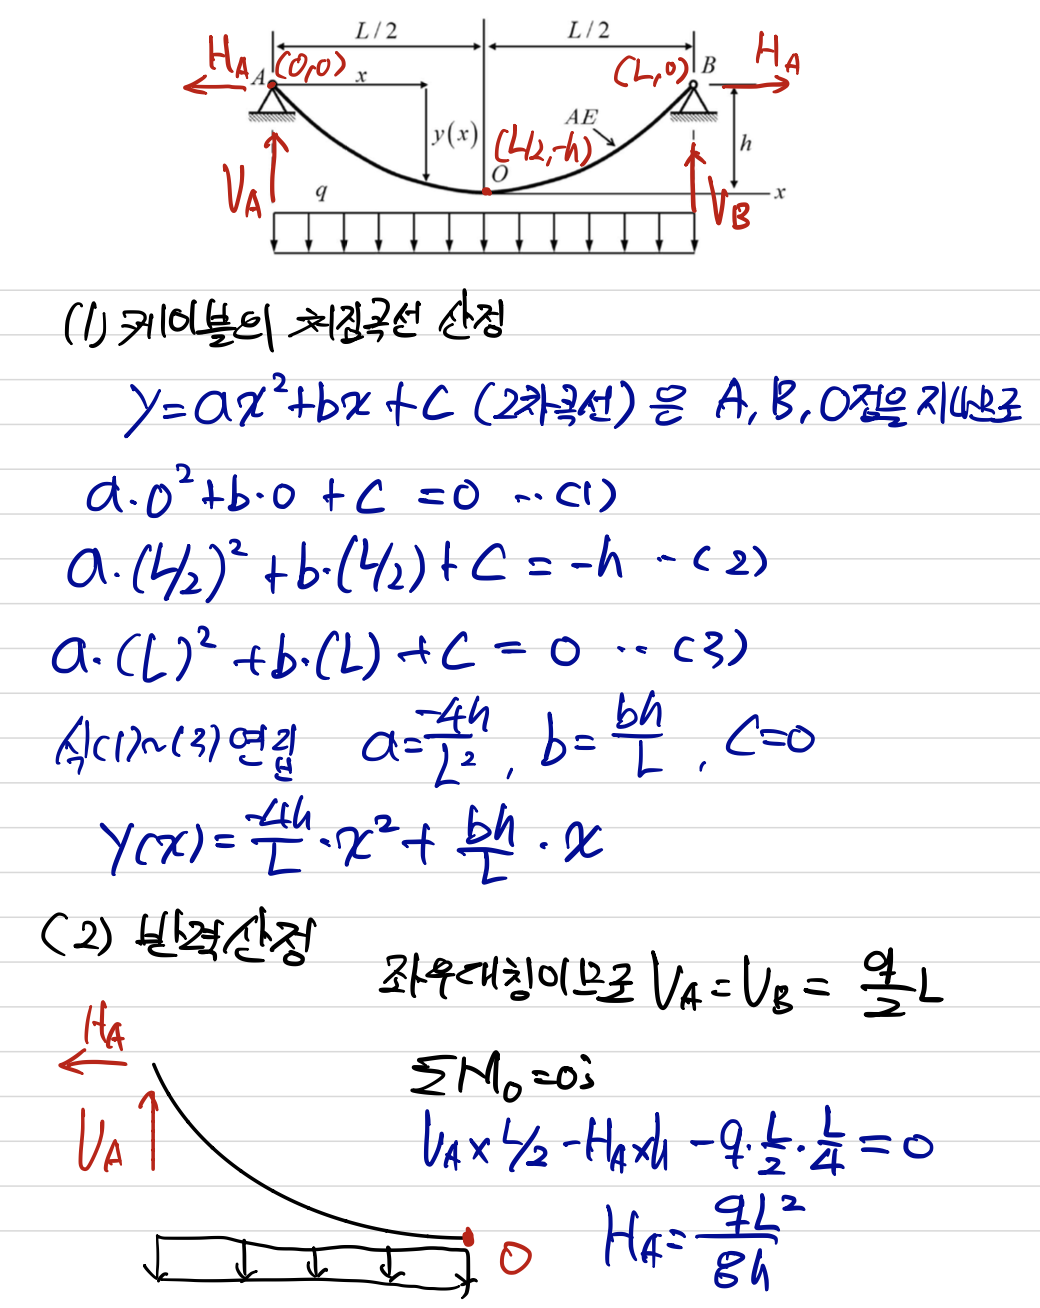 L/2 L/2
H_A A (0,0) x (L,0) B H_A
y(x) (L/2,-h) AE h
V_A q O x V_B
(1) 케이블의 처짐곡선 산정
y=ax²+bx+c (2차곡선)은 A, B, O점을 지나므로
a·0²+b·0+c=0 ···(1)
a·(L/2)²+b·(L/2)+c=-h ··(2)
a·(L)²+b·(L)+c=0 ···(3)
식(1)~(3)연립 a=-4h/L², b=bh/L, c=0
y(x)=-4h/L·x²+bh/L·x
(2) 반력산정
좌우대칭이므로 V_A=V_B=q/2 L
H_A
ΣM_O=0;
V_A V_A×L/2-H_A×h-q·L/2·L/4=0
H_A=qL²/8h
O